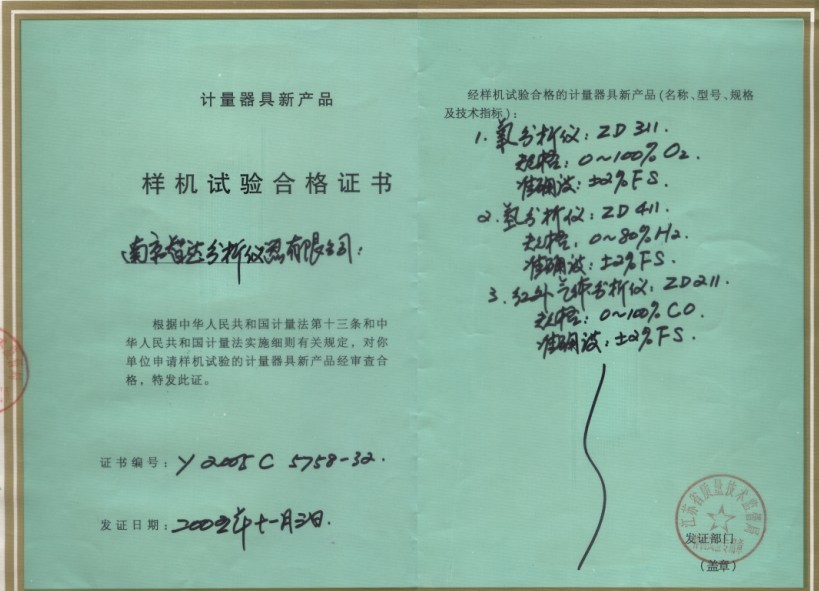 计量器具新产品
样机试验合格证书
南京智达分析仪器有限公司：
根据中华人民共和国计量法第十三条和中
华人民共和国计量法实施细则有关规定，对你
单位申请样机试验的计量器具新产品经审查合
格，特发此证。
证书编号：Y2005C 5758-32.
发证日期：2005年十一月三日.
经样机试验合格的计量器具新产品（名称、型号、规格
及技术指标）：
1. 氧分析仪：ZD311.
规格：0～100% O2.
准确度：±2%FS.
2. 氢分析仪：ZD411.
规格：0～80% H2.
准确度：±2%FS.
3. 红外气体分析仪：ZD211.
规格：0～100% CO.
准确度：±2%FS.
江苏省质量技术监督局
发证部门
（盖章）